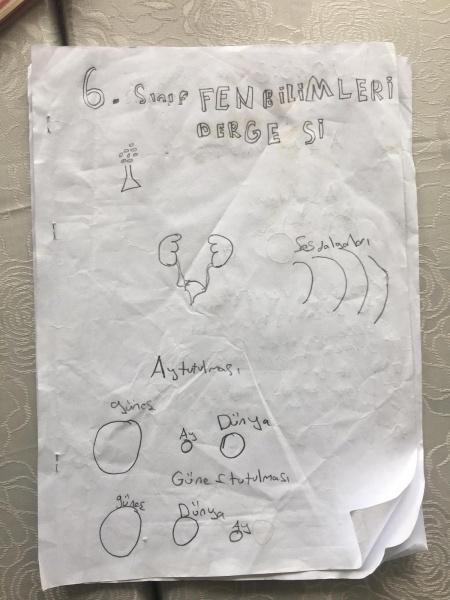 6. Sınıf FEN BİLİMLERİ
DERGE Sİ
Ses dalgaları
Ay tutulması
güneş
Ay
Dünya
Güneş tutulması
güneş
Dünya
Ay